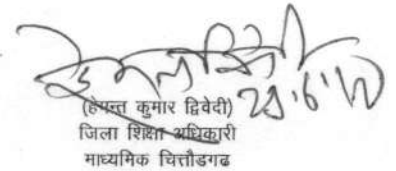 (हेमन्त कुमार द्विवेदी)
जिला शिक्षा अधिकारी
माध्यमिक चित्तौडगढ